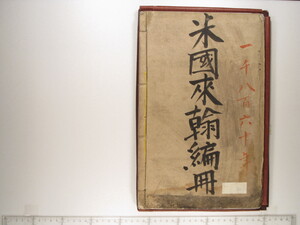 一千八百六十年
米國來翰編冊